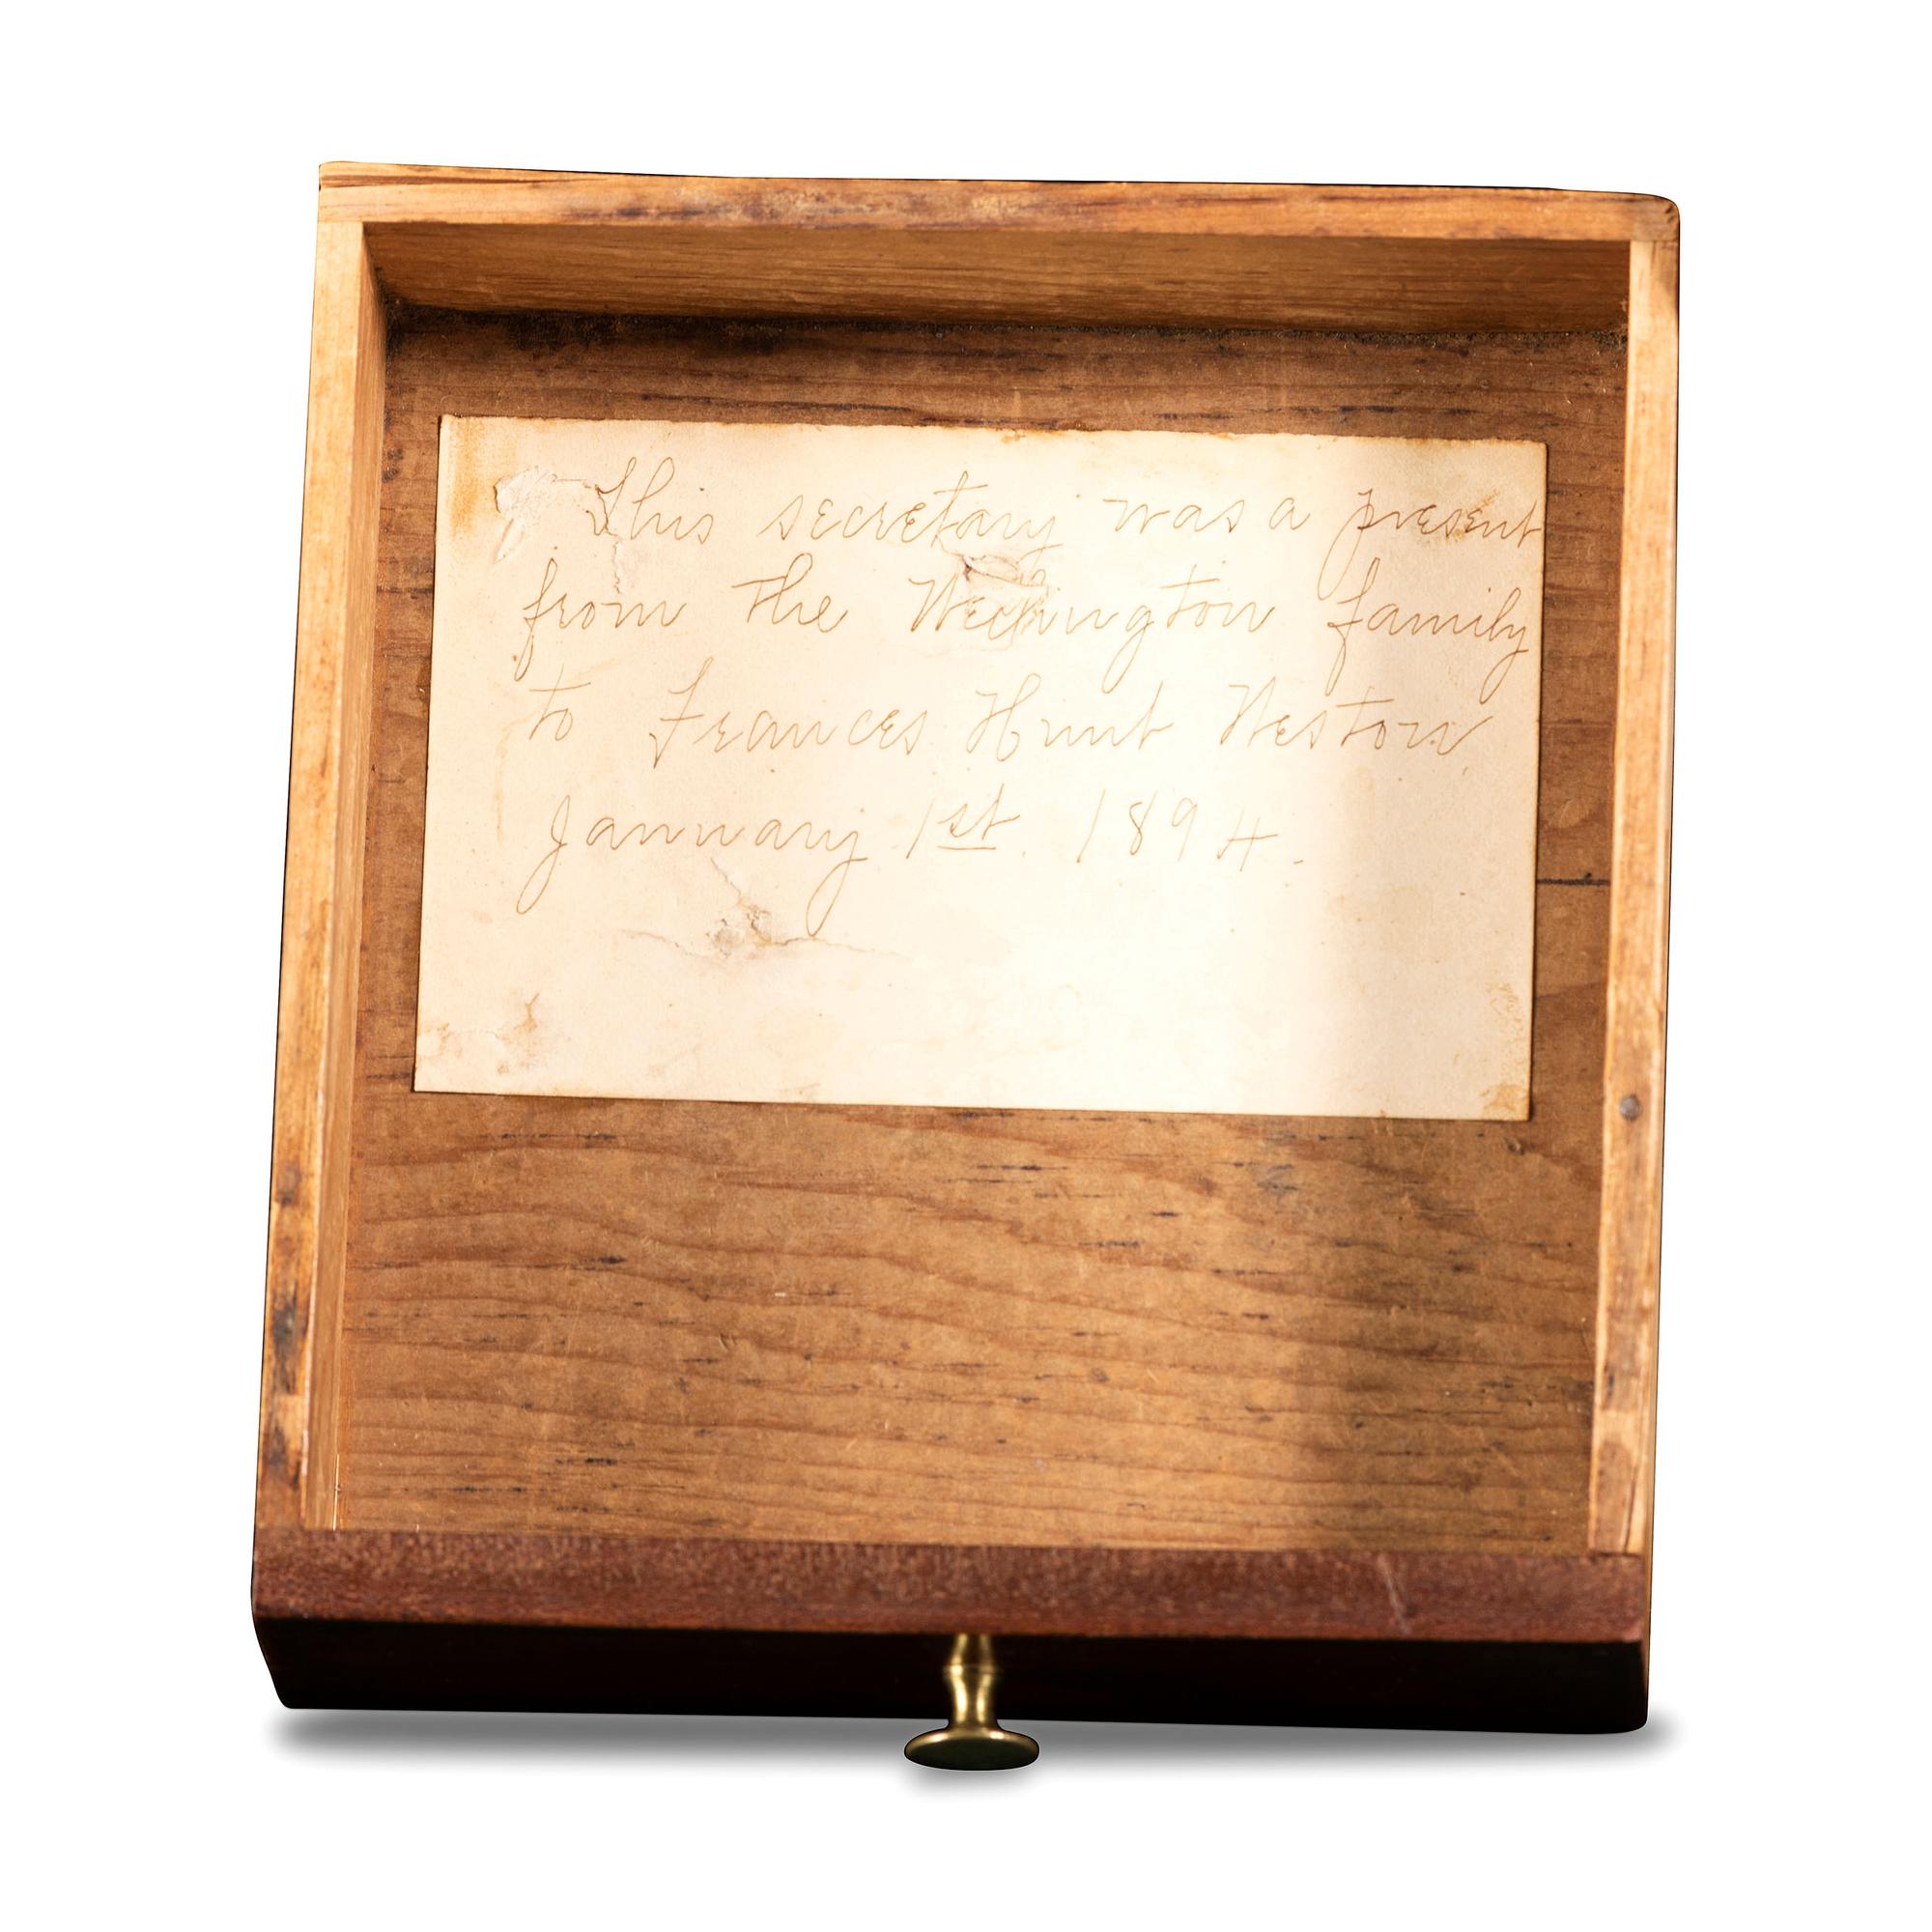 This secretary was a present
from the family
to Frances Hunt Weston
January 1st. 1894.